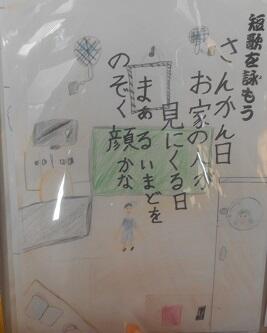 短歌を詠もう
さんかん日
お家の人が
見にくる日
まぁるいまどを
のぞく顔かな